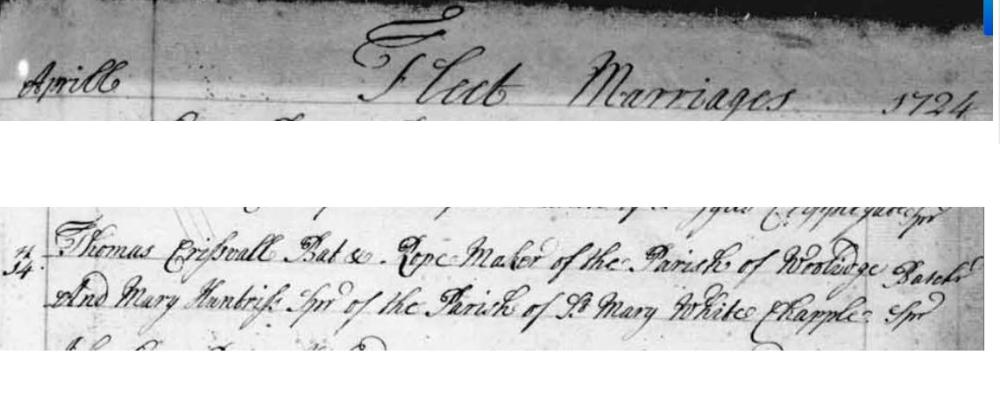 Aprill Fleet Marriages 1724
Spr
Thomas Crissvall Bat & Rope Maker of the Parish of Woolidge Batchr
And Mary Hunbriss Spr of the Parish of St Mary White Chapple Spr